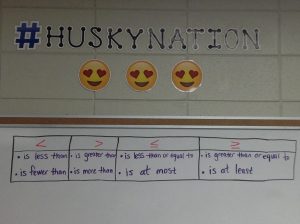 #HUSKYNATION
< > ≤ ≥
• is less than • is greater than • is less than or equal to • is greater than or equal to
• is fewer than • is more than • is at most • is at least